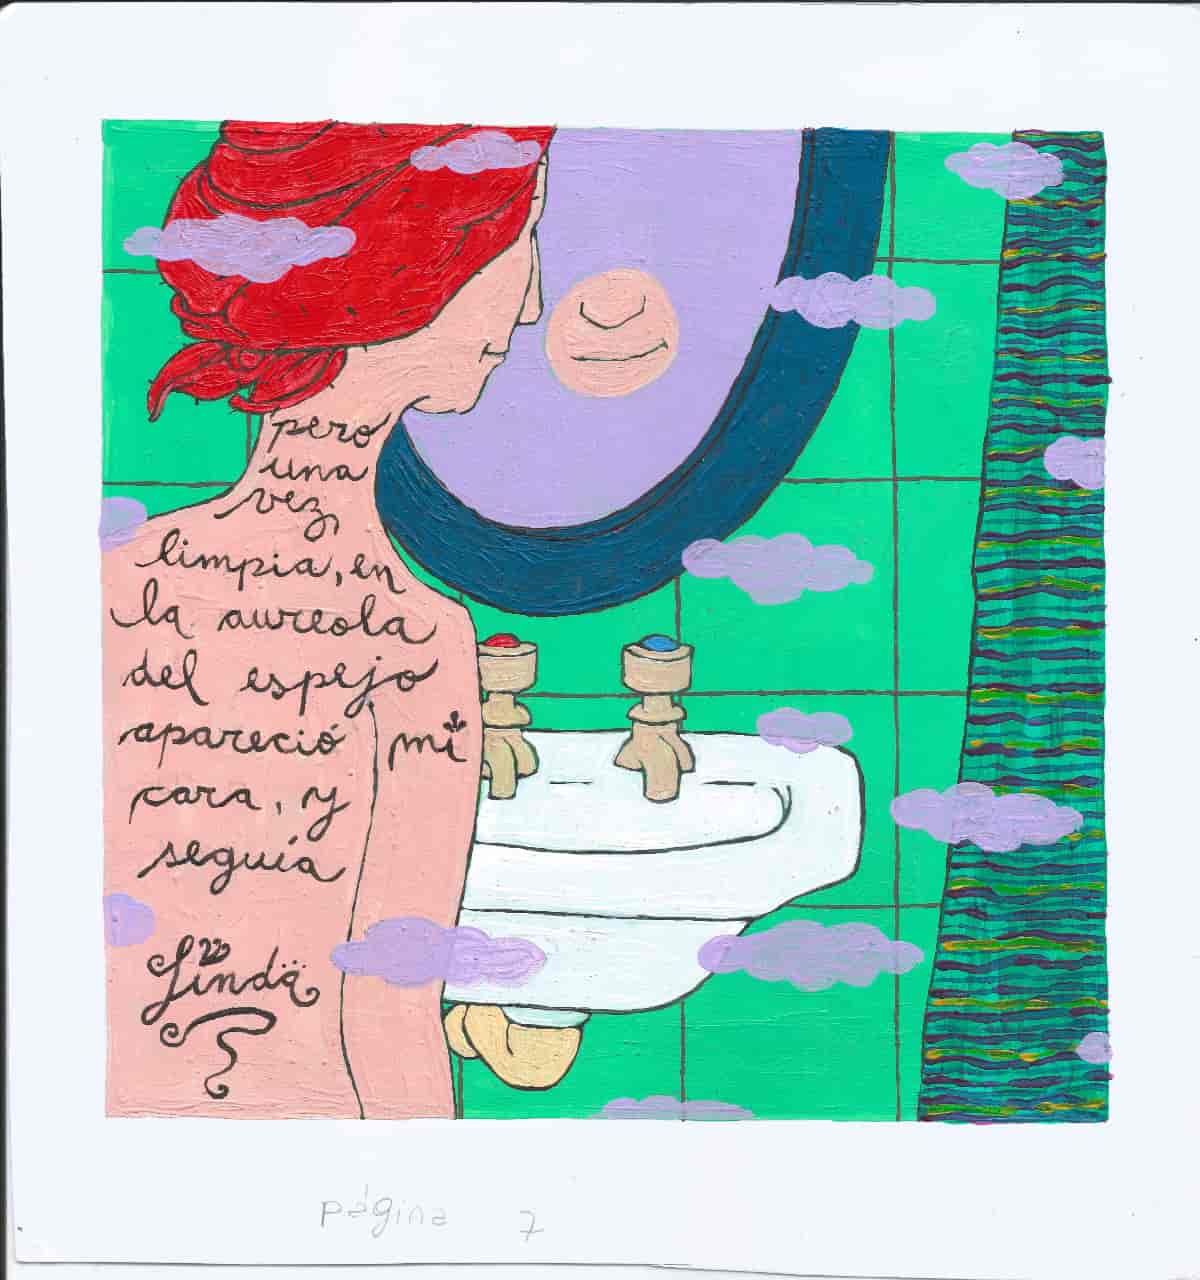 pero
una
vez
limpia, en
la aureola
del espejo
apareció mi
cara, y
seguía
linda
página 7